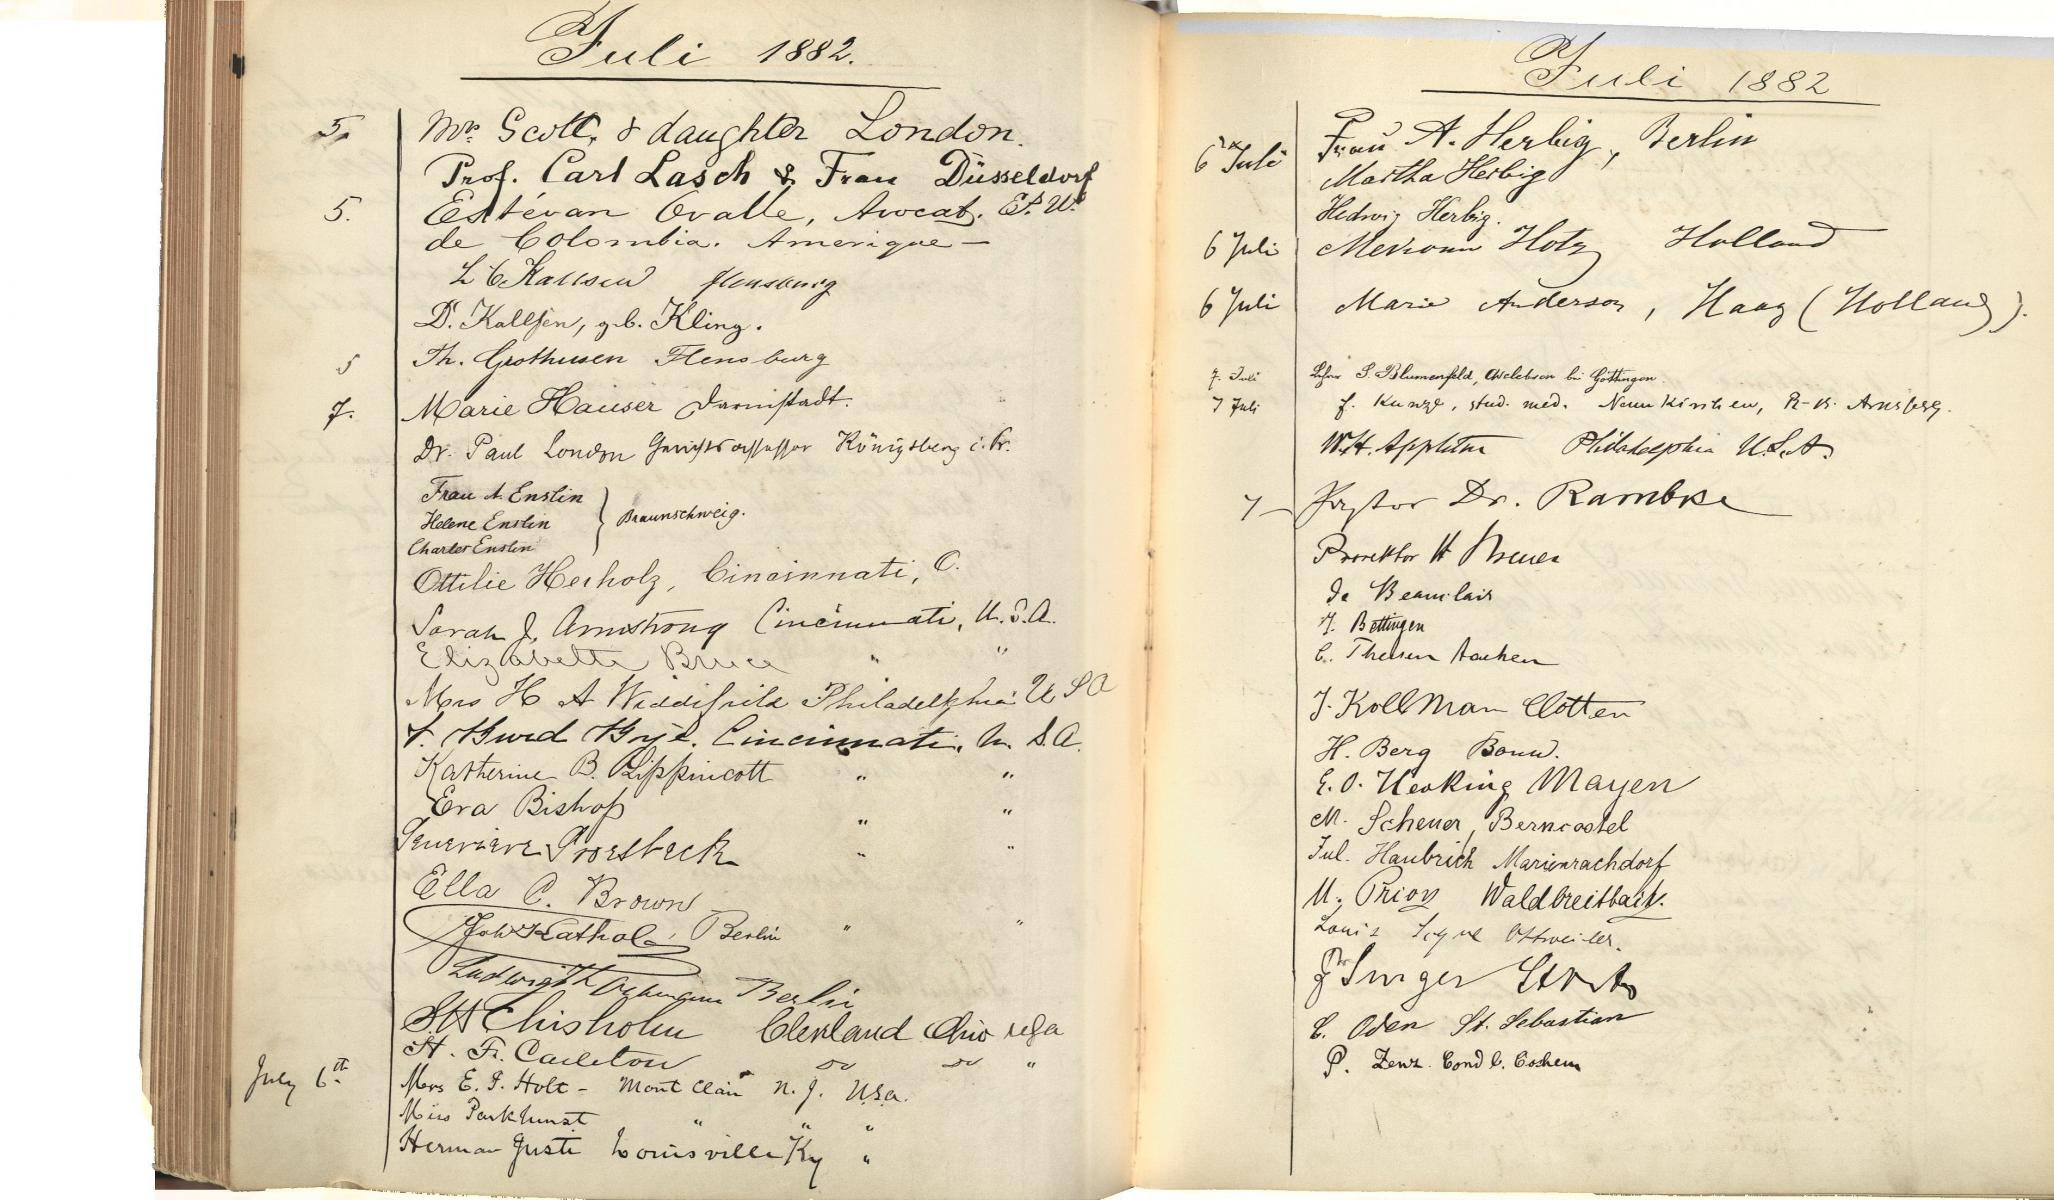 Juli 1882.
5. Mrs. Scott, & daughter London.
Prof. Carl Lasch & Frau Düsseldorf
5. Estévan Ovalle, Avocat. Ets. Us
de Colombia. Amerique —
L C Kallsen Flensburg
D. Kallsen, geb. Kling.
5 Th. Grothusen Flensburg
7. Marie Hauser Darmstadt.
Dr. Paul London Gerichtsassessor Königsberg i. Pr.
Frau A Enslin
Helene Enslin } Braunschweig.
Charles Enslin
Ottilie Herholz, Cincinnati, O.
Sarah J. Armstrong Cincinnati, U.S.A.
Elizabeth Bruce " "
Mrs H A Widdifield Philadelphia U S A
Cincinnati, U. S. A.
Katherine B. Lippincott " "
Eva Bishop " "
Genevieve Groesbeck " "
Ella C. Brown
Joh Kathol, Berlin " "
Ludwig Berlin
Chisholm Cleveland Ohio USA
H. F. Carleton do do "
July 6th Mrs E. P. Holt - Mont Clair N. J. U.S.A.
Miss Parkhurst " " "
Herman Juste Louisville Ky "
Juli 1882
6 Juli Frau A. Herbig, Berlin
Martha Herbig
Hedwig Herbig.
6 Juli Mevrouw Holland
6 Juli Marie Anderson, Haag (Holland).
7. Juli S. Blumenfeld, Adelebsen bei Göttingen
7 Juli F. Kunze, stud. med. Neunkirchen, R-B. Arnsberg.
W.H. Appleton Philadelphia U.S.A.
7 — Pastor Dr. Rambke
Prorektor H Breuer
de Beauclair
J. Bettingen
C. Theisen Aachen
J. Kollman Clotten
H. Berg Bonn.
E. O. Herking Mayen
M. Scheuer, Berncastel
Jul. Haubrich Marienrachdorf
U. Prion Waldbreitbach.
Louis Ottweiler.
Singer
C. Oden St. Sebastian
P. Zenz. Cond b. Cochem